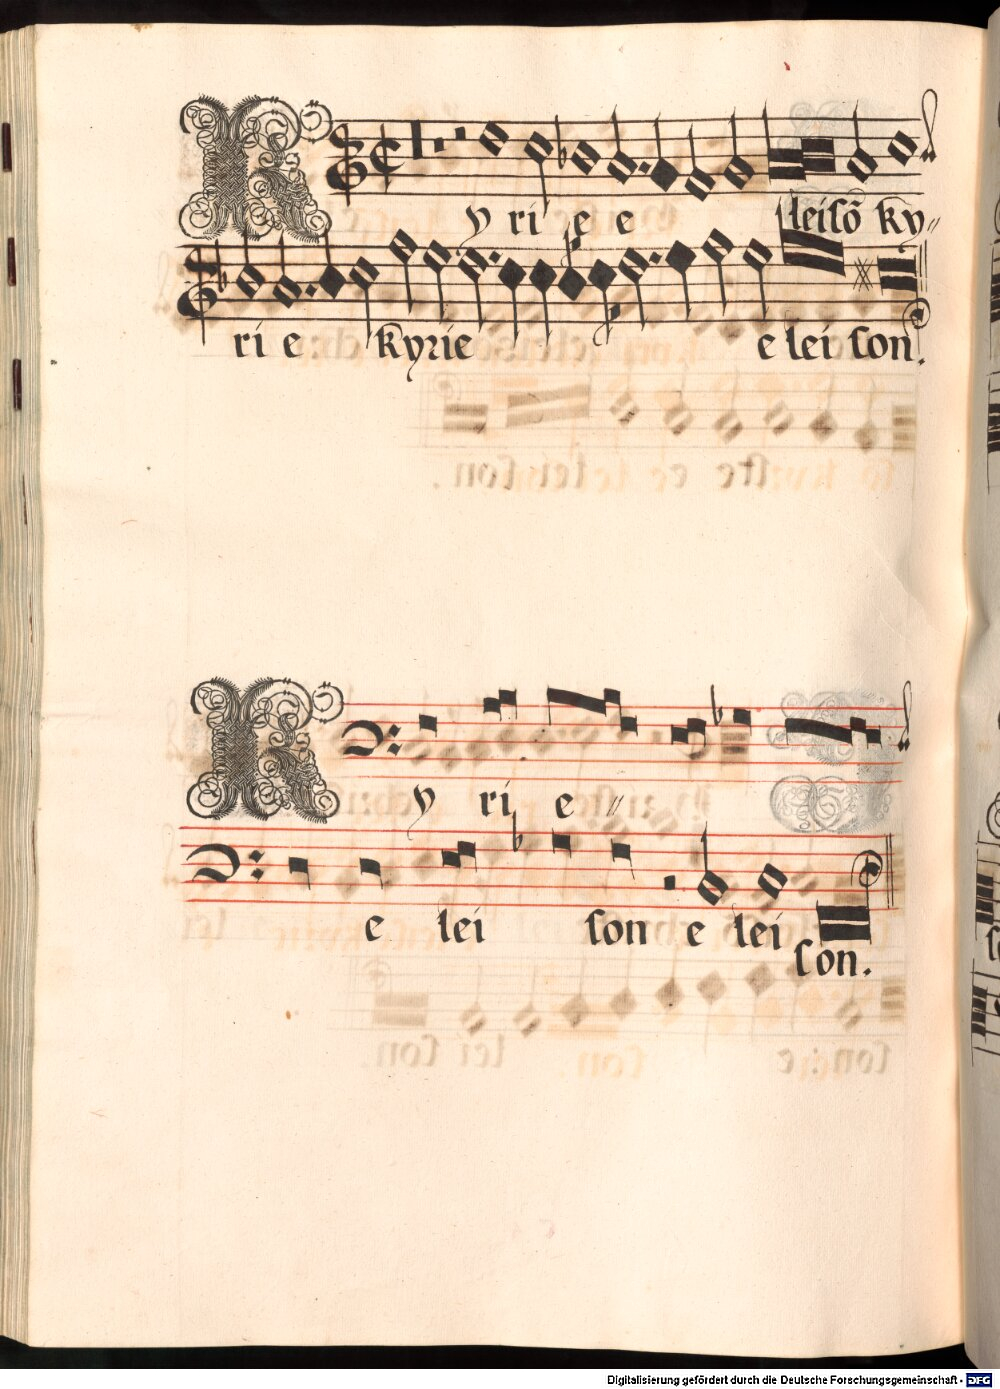 Kyrie e leisō ky⸗
rie kyrie eleison.
Kyrie⸗
e leison elei
son.
Digitalisierung gefördert durch die Deutsche Forschungsgemeinschaft - DFG